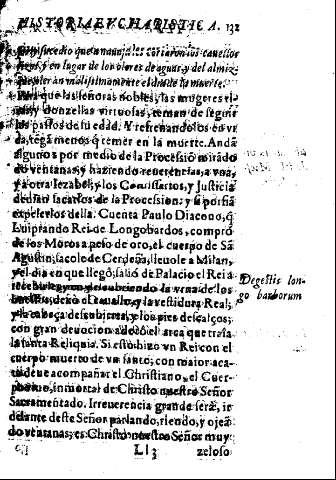 HISTORIA EVCHARISTICA. 132
sucedio que a nauajales cortaron los cauellos
y en lugar de los olores de aguas y del almiz-
olerán malissimamente el dia de la muerte.
Para que las señoras nobles, las mugeres ri-
y donzellas virtuosas, teman de seguir
los passos de su edad. Y refrenandolos en vi
da, tẽgã menos q̃ temer en la muerte. Andã
algunos por medio de la Processiõ mirãdo
do ventanas, y haziendo reuerencias, a vna,
y a otra Iezabel, y los Comissarios, y Iusticia
deuian sacarlos de la Procession, y si porfiã
expelerlos della. Cuenta Paulo Diacono, q̃
Luiprando Rei de Longobardos, comprò
de los Moros a peso de oro, el cuerpo de Sã
Agustin, sacole de Cerdeña, lleuole a Milan,
y el dia en que llegò, salio de Palacio el Rei a
recebirle, y en descubriendo la vrna de los
huessos, dexò el cauallo, y la vestidura Real;
y la cabeça descubierta, y los pies descalços;
con gran deuocion adorò el arca que traía
la santa Reliquia. Si esto hizo vn Rei con el
cuerpo muerto de vn santo; con maior aca-
deue acompañar el Christiano, el Cuer-
po viuo, inmortal de Christo nuestro Señor
Sacramentado. Irreuerencia grande serà, ir
delante deste Señor parlando, riendo, y ojeã
do ventanas; es Christo nuestro Señor muy
Ll 3 zeloso
Degestis lon-
go bardorum